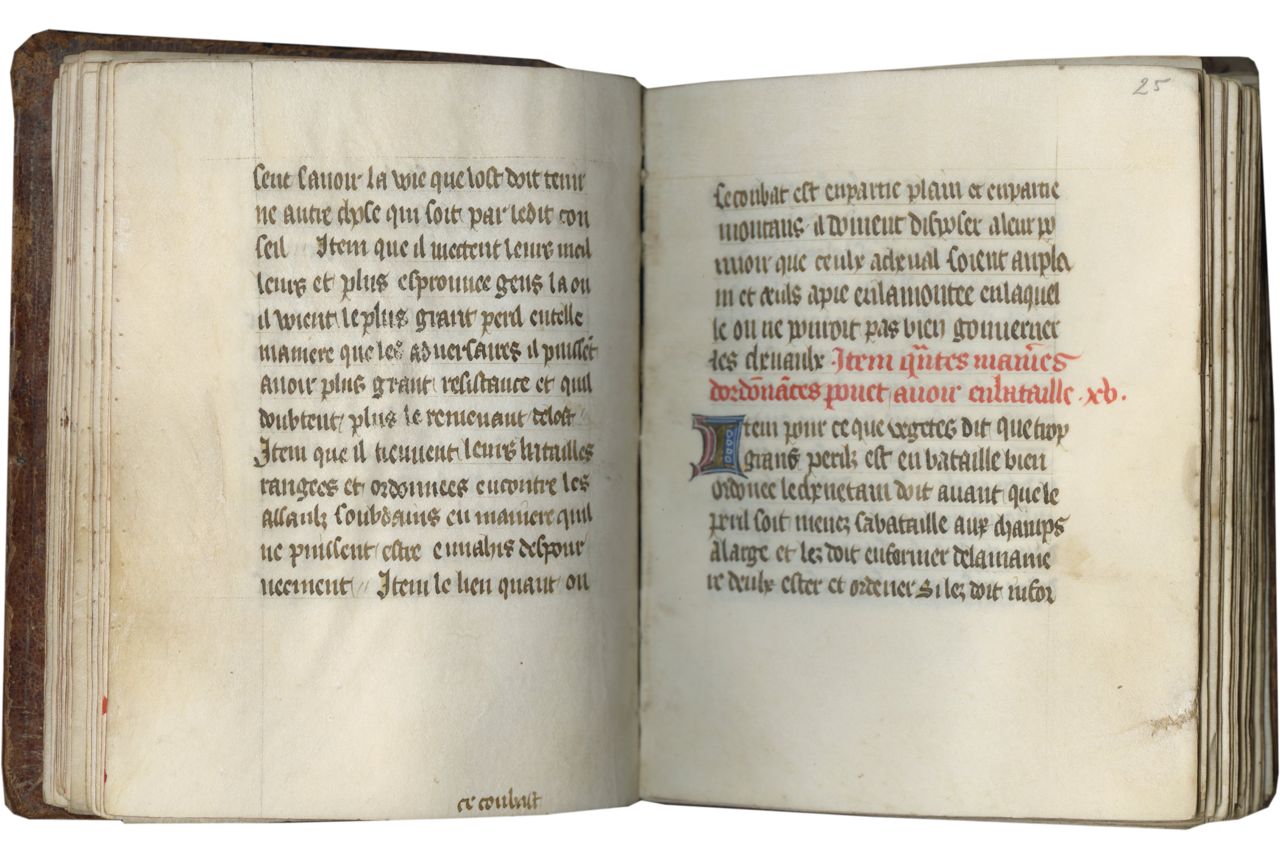 sent sauoir la voie que lost doit tenir
ne autre chose qui soit par ledit con
seil Item que il mettent leurs meil
leurs et plus esprouuee gens la ou
il voient le plus grant peril en telle
maniere que les aduersaires il puissent
auoir plus grant resistance et quil
doubtent plus le remenant de lost
Item que il tieunent leurs batailles
rangees et ordonnees encontre les
assaulz soubdains en maniere quil
ne puissent estre enuahis despour
ueement Item le lieu quant on
ce conbast
25
se conbat est enpartie plain et enpartie
montans il doiuent disposer a leur po
uuoir que ceulx acheual soient aupla
in et ceuls apie en la montee en laquel
le on ne pouroit pas bien gouuerner
les cheuaulx Item qntes manies
dordonances pouet auoir en bataille .xv.
Item pour ce que vegetes dit que trop
grans perilz est en bataille bien
ordonee le cheuetain doit auant que le
peril soit menez sa bataille aux champs
a large et lez doit enformer de la manie
re deulx ester et ordener Si lez doit infor